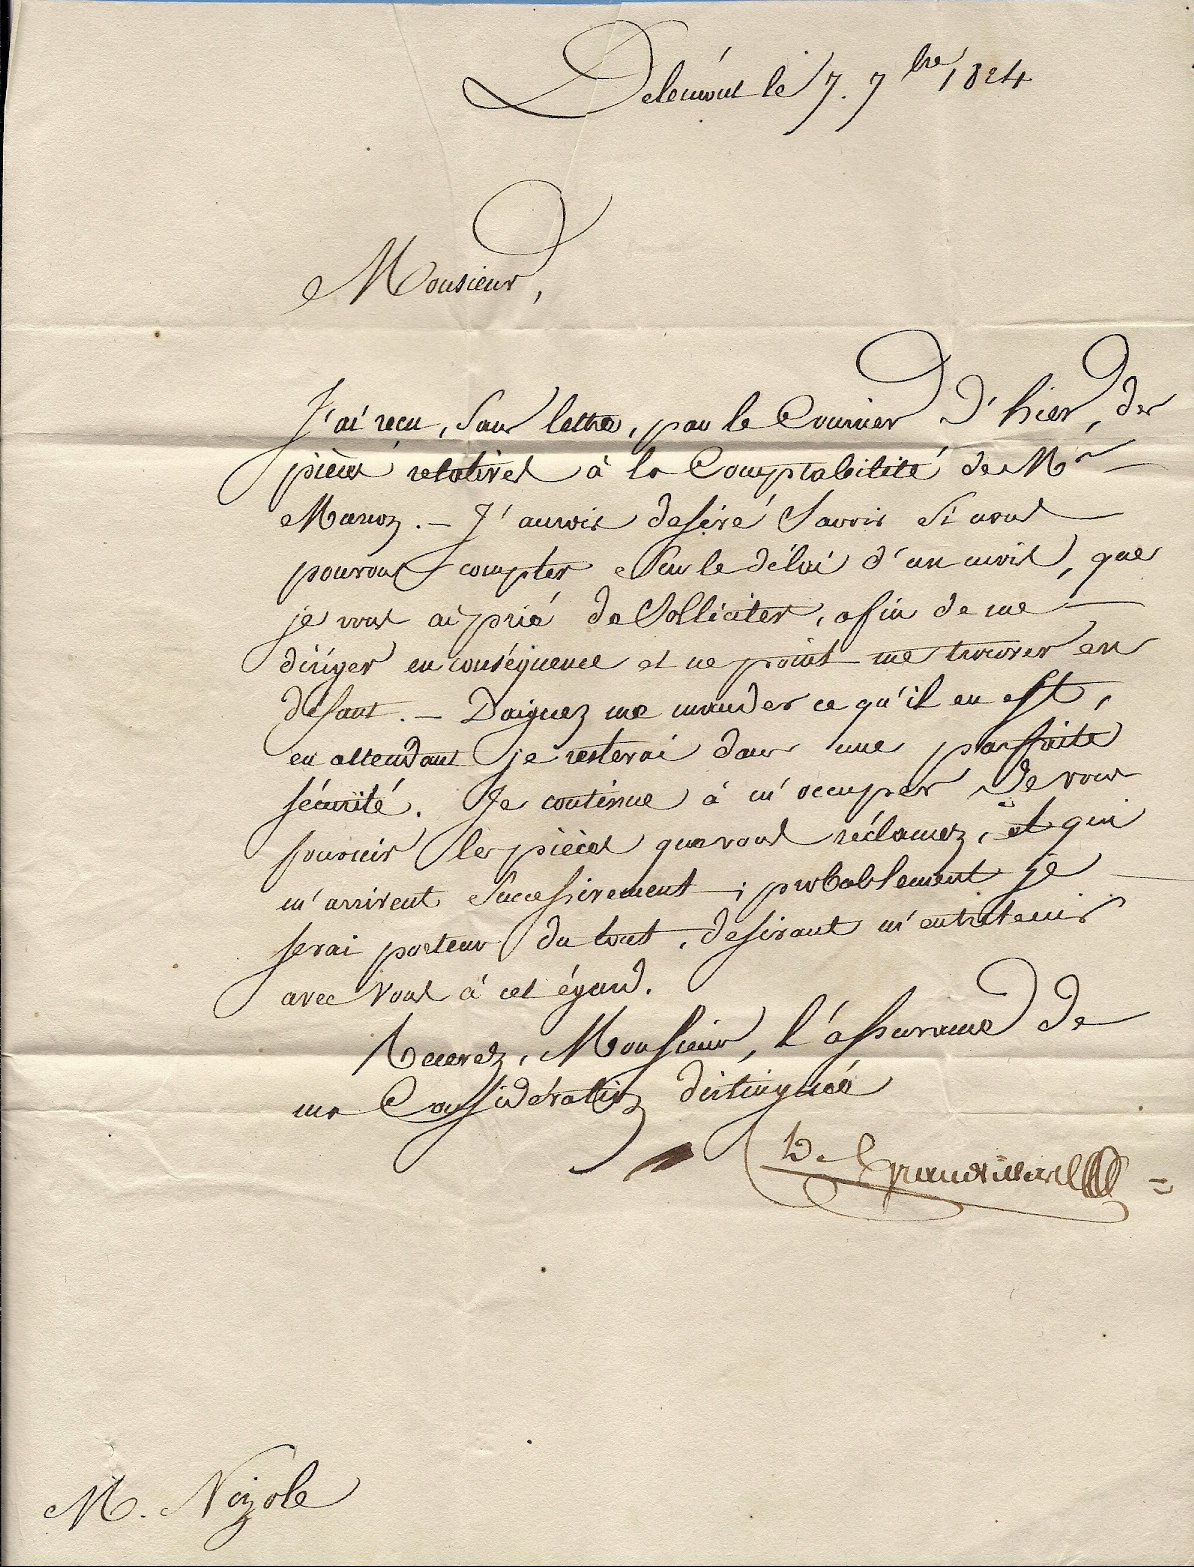 Delémont le 7. 7bre 1824
Monsieur,
J'ai reçu, sans lettre, par le Courrier d'hier, des
pièces relatives à la Comptabilité de Mr
. — J'aurois desiré savoir si nous
pouvons compter sur le délai d'un mois, que
je vous ai prié de solliciter, afin de me
diriger en conséquence et ne point me trouver en
défaut. — Daignez me mander ce qu'il en est,
en attendant je resterai dans une parfaite
sécurité. Je continue à m'occuper de vous
fournir les pièces que vous réclamez, et qui
m'arrivent successivement ; probablement je
serai porteur du tout, desirant m'entretenir
avec vous à cet égard.
Recevez, Monsieur, l'assurance de
ma Considération distinguée
De Grandvillers
M. Nizole